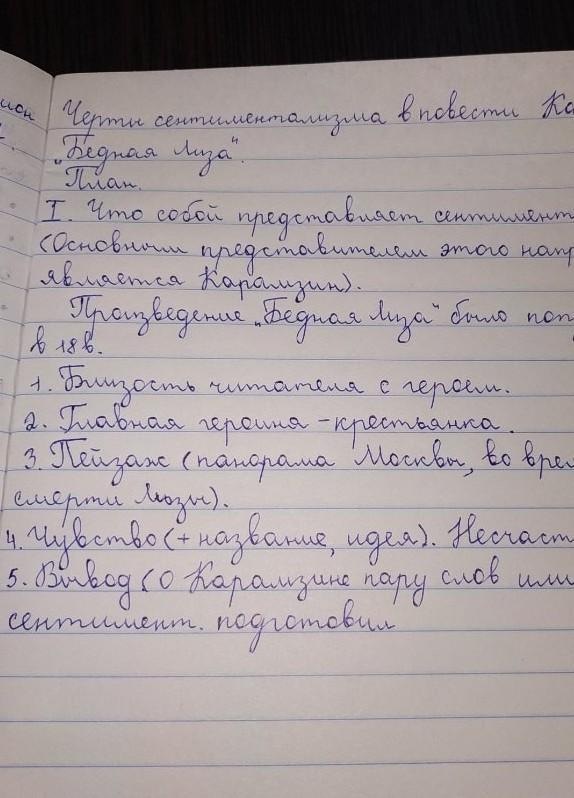 Черты сентиментализма в повести Ка
„Бедная Лиза".
План.
I. Что собой представляет сентимент
(Основным представителем этого напр
является Карамзин).
Произведение „Бедная Лиза" было поп
в 18 в.
1. Близость читателя с героем.
2. Главная героиня - крестьянка.
3. Пейзаж (панорама Москвы, во вре
смерти Лизы).
4. Чувство (+ название, идея). Несчаст
5. Вывод (О Карамзине пару слов или
сентимент. подготовил